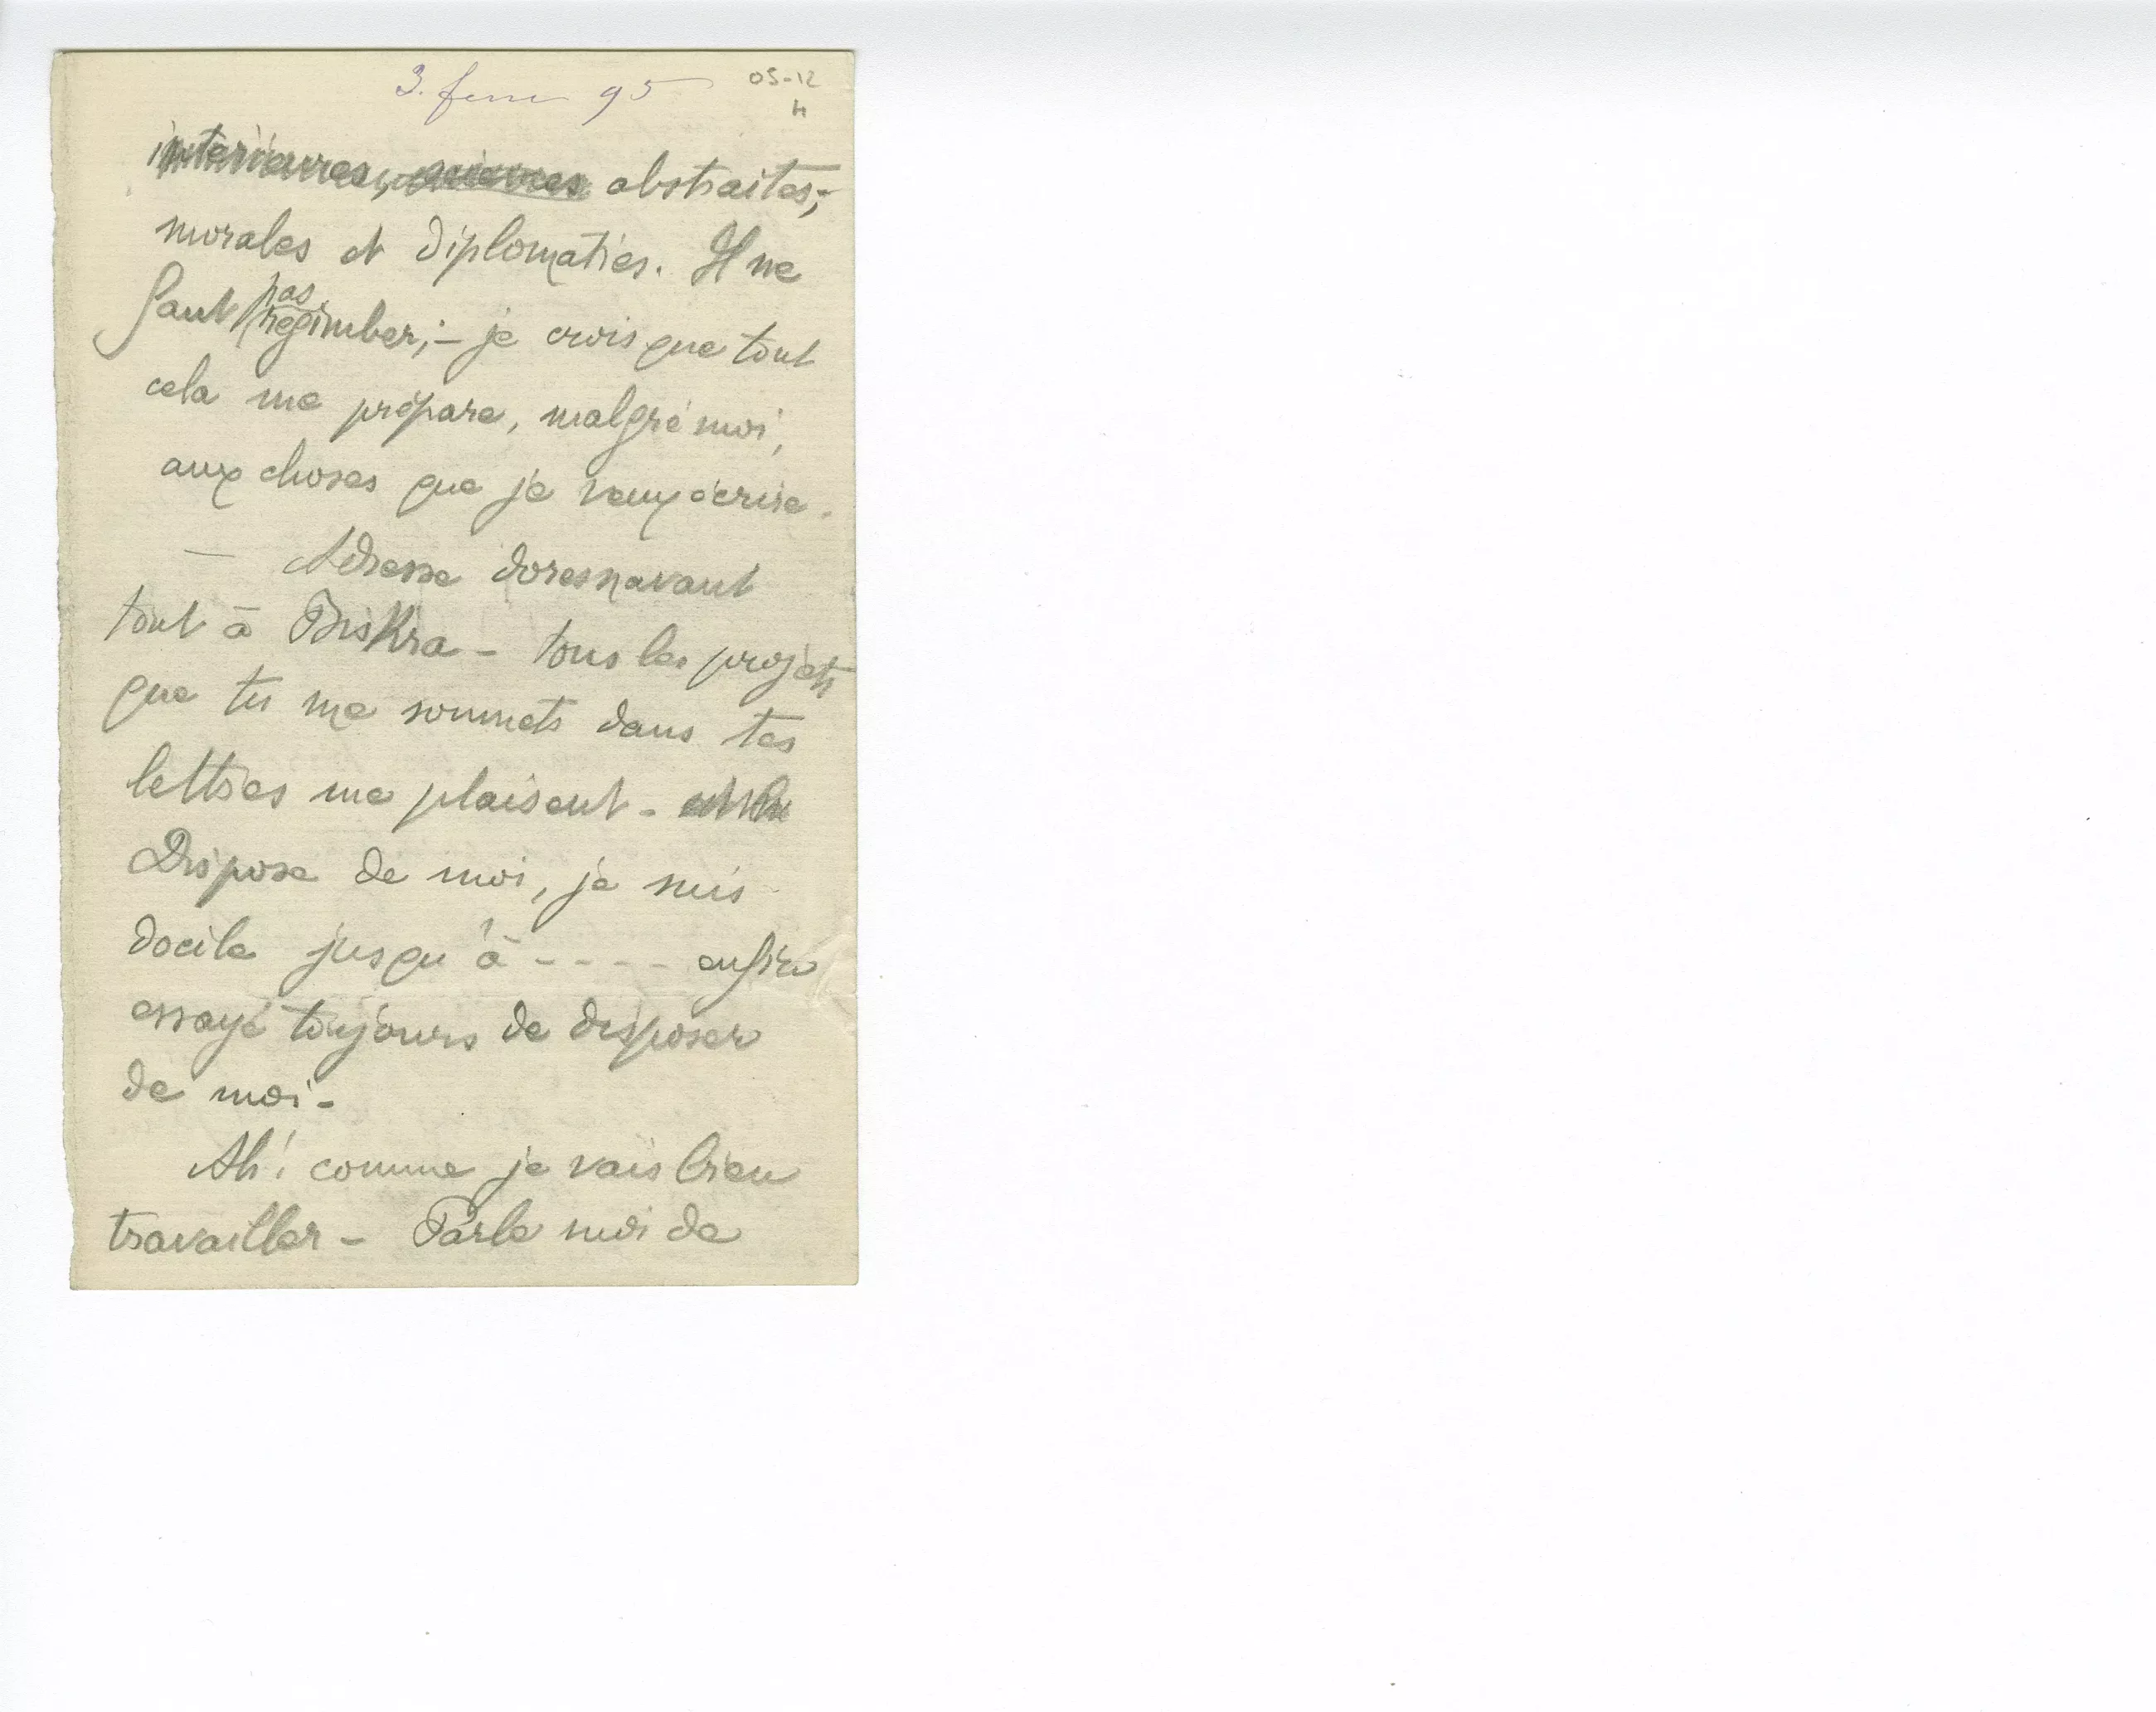 3. fevr 95
05-12
H
interieures, abstraites;
morales et diplomaties. Il ne
faut pas regimber; - je crois que tout
cela me prépare, malgré moi,
aux choses que je veux écrire.
— Adresse doresnavant
tout à Biskra - tous les projets
que tu me soumets dans tes
lettres me plaisent -
Dispose de moi, je suis
docile jusqu'à - - - - enfin
essaye toujours de disposer
de moi -
Ah! comme je vais bien
travailler - Parle moi de